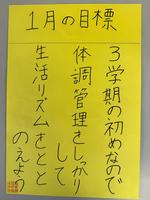 1月の目標
3学期の初めなので
体調管理をしっかり
して
生活リズムをとと
のえよう